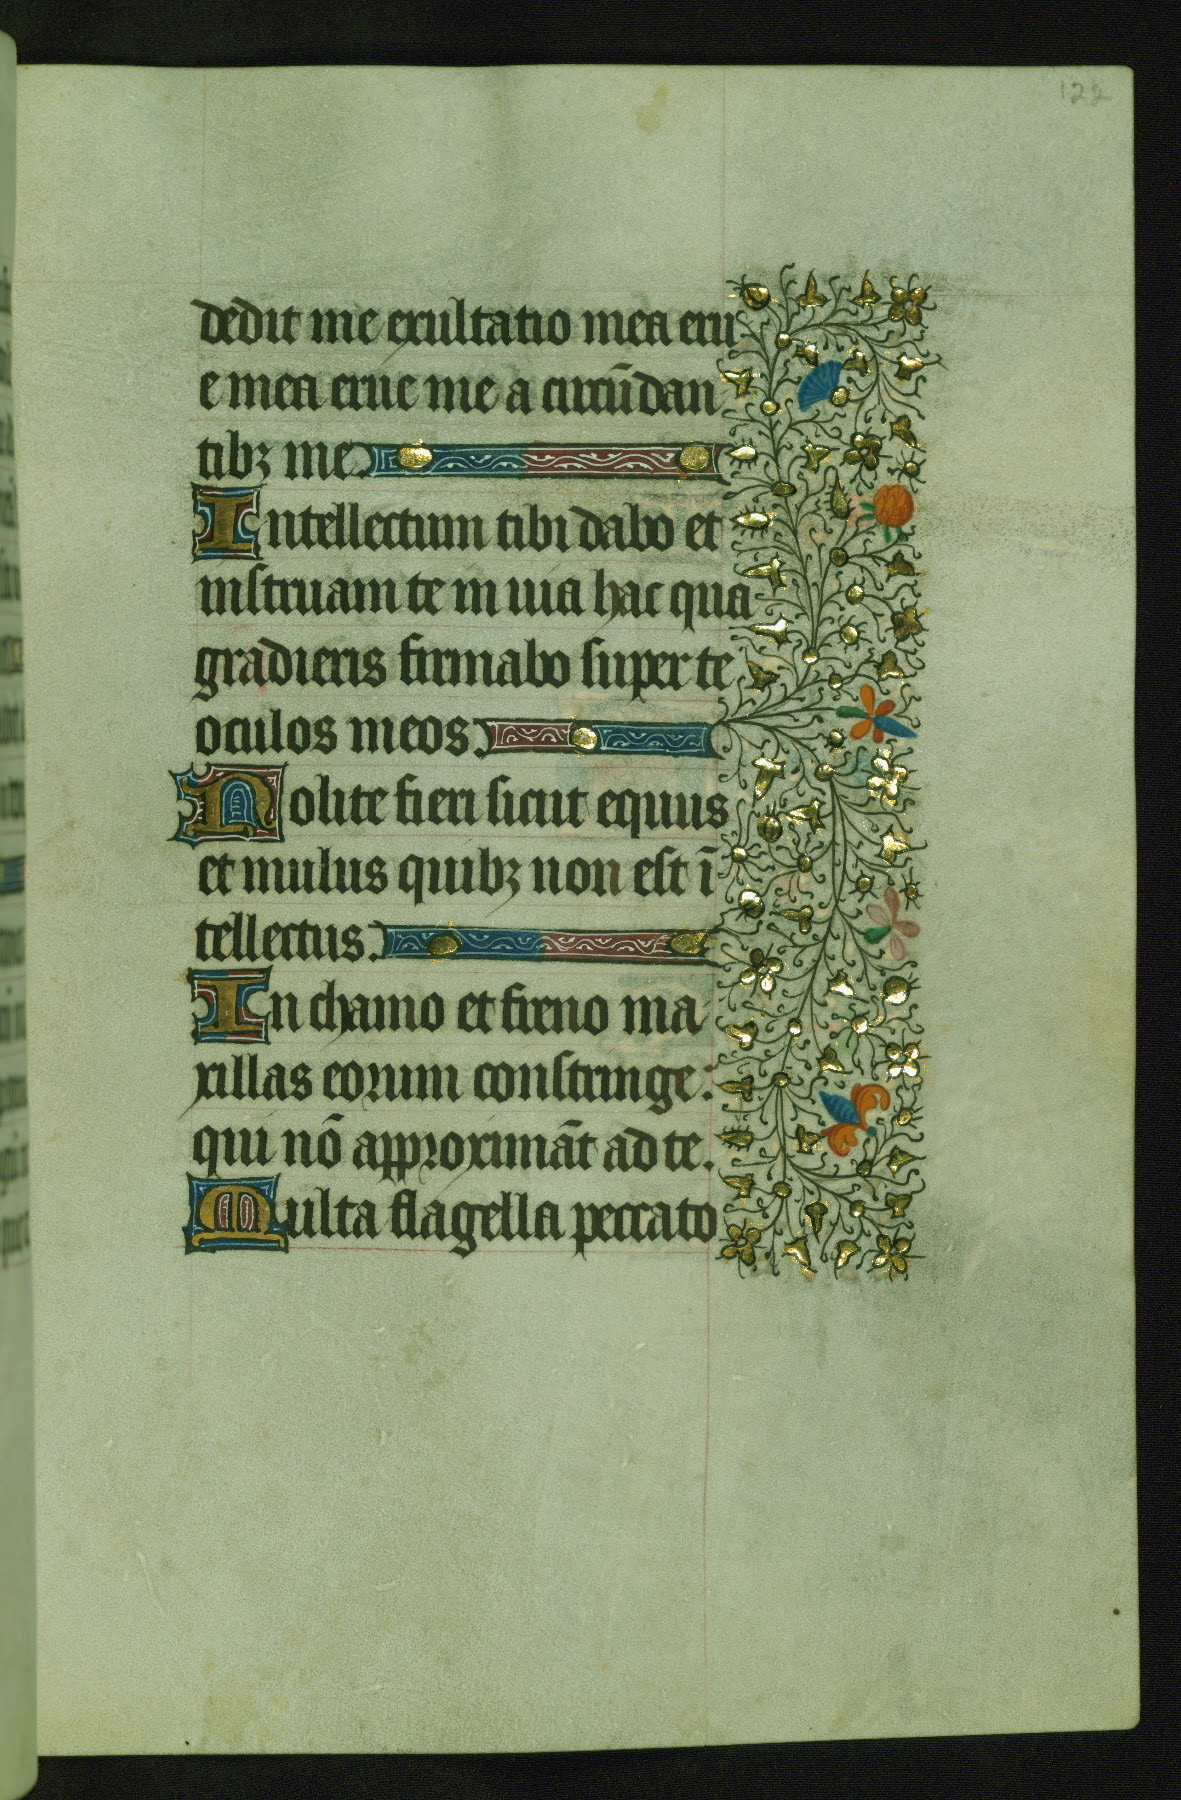 122
dedit me exultatio mea eru
e mea erue me a circūdan
tibꝫ me.
Intellectum tibi dabo et
instruam te in uia hac qua
gradieris firmabo super te
oculos meos.
Nolite fieri sicut equus
et mulus quibꝫ non est ī
tellectus.
In chamo et freno ma
xillas eorum constringe:
qui nō approximāt ad te.
Multa flagella peccato